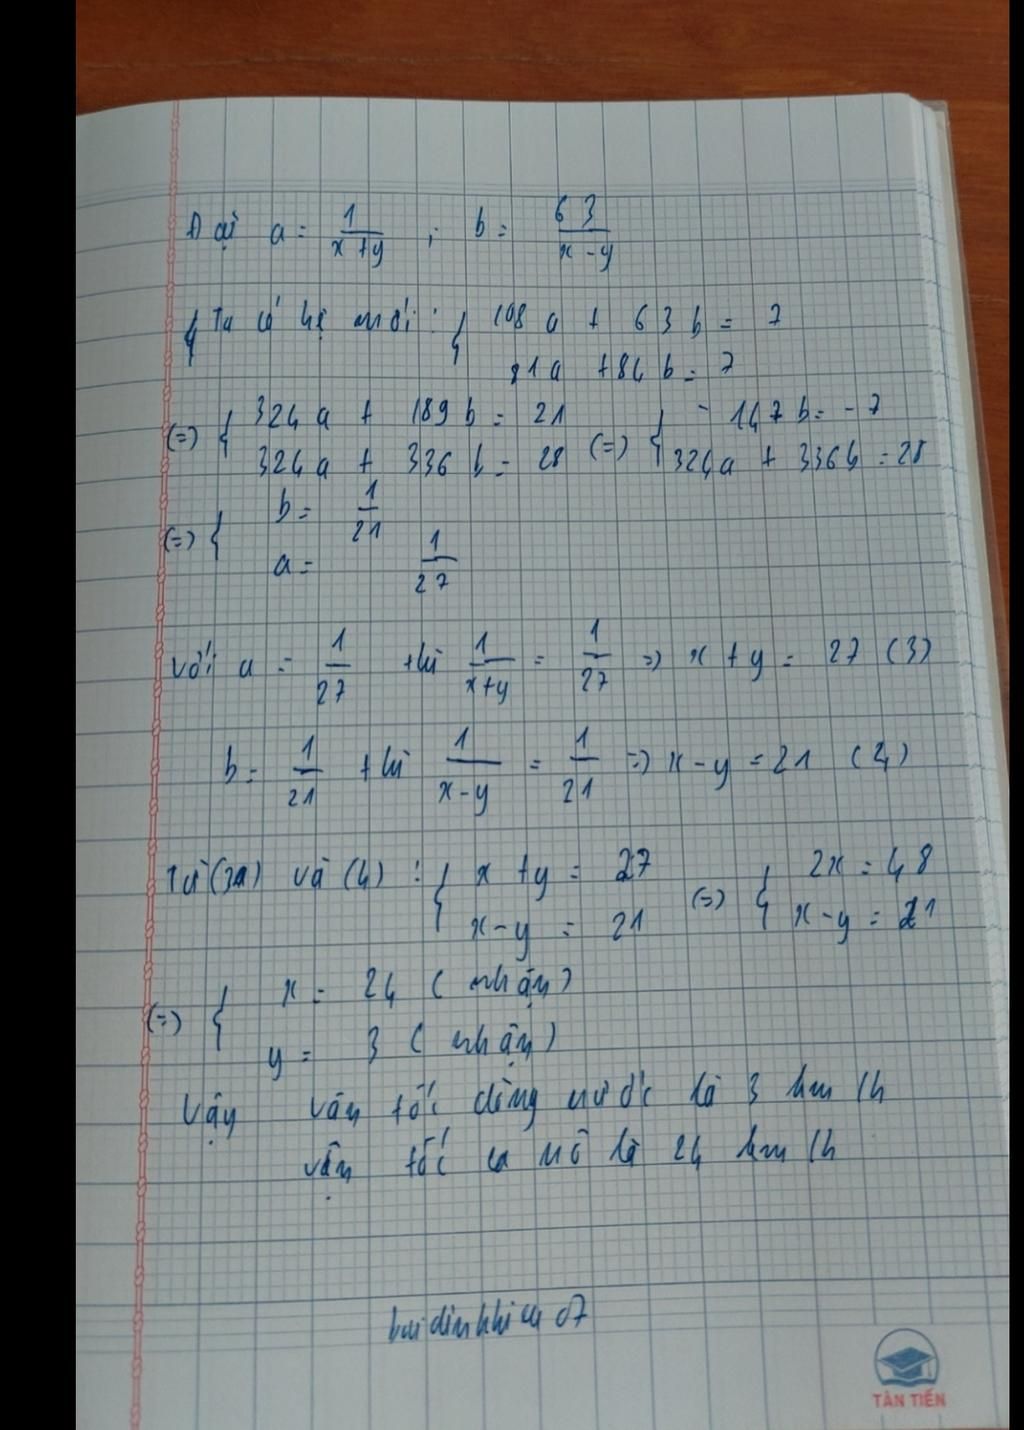 Đặt a = 1/(x+y) ; b = 63/(x-y)
{ Ta có hệ mới : { 108a + 63b = 7
81a + 84b = 7
(=) { 324a + 189b = 21 (=) { -147b = -7
324a + 336b = 28 324a + 336b = 28
(=) { b = 1/21
a = 1/27
Với a = 1/27 thì 1/(x+y) = 1/27 => x + y = 27 (3)
b = 1/21 thì 1/(x-y) = 1/21 => x - y = 21 (4)
Từ (3) và (4) : { x + y = 27 (=) { 2x = 48
x - y = 21 x - y = 21
(=) { x = 24 ( nhận )
y = 3 ( nhận )
Vậy vân tốc dòng nước là 3 km/h
vận tốc ca nô là 24 km/h
TÂN TIẾN